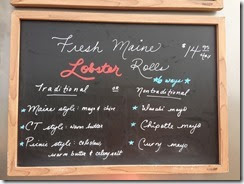 Fresh Maine
Lobster Rolls
$14.99
6 ways
Traditional
or
Nontraditional
Maine style: mayo & chive
CT style: warm butter
Picnic style: coleslaw,
warm butter & celery salt
Wasabi mayo
Chipotle mayo
Curry mayo